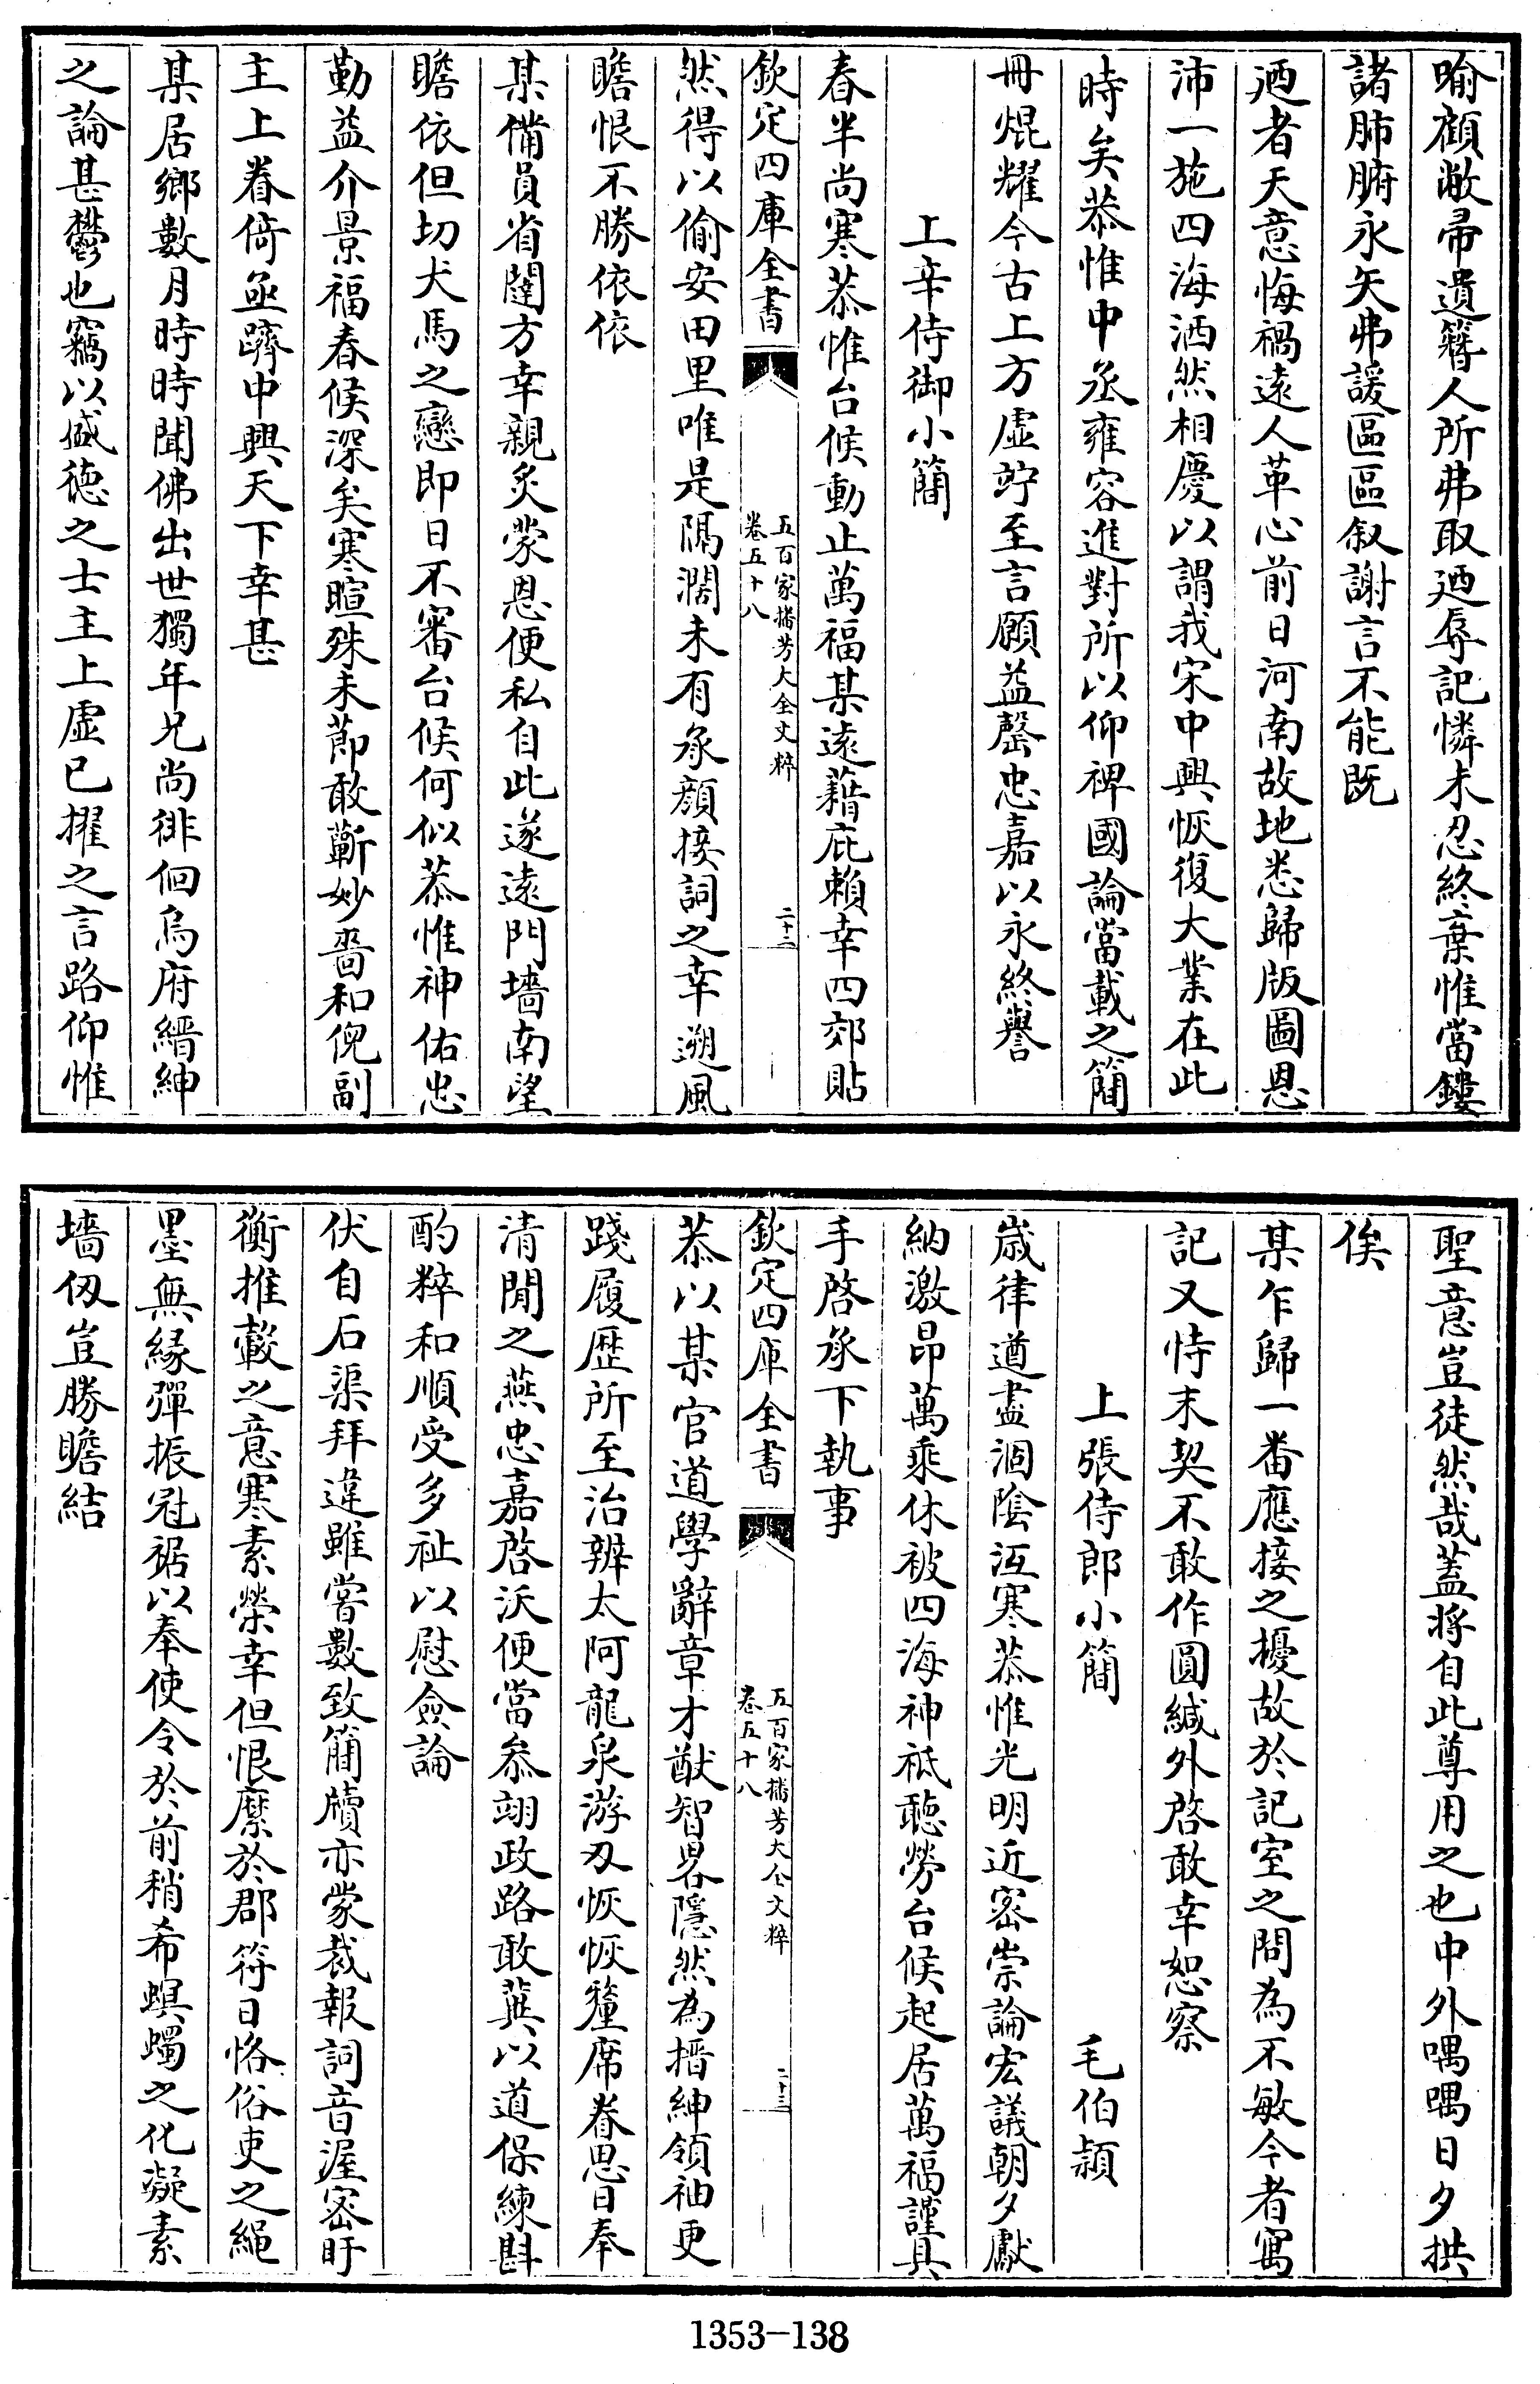 喻顧敝帚遺簪人所弗取廼辱記憐未忍終棄惟當鏤
諸肺腑永矢弗諼區區叙謝言不能既
廼者天意悔禍遠人革心前日河南故地悉歸版圖恩
沛一施四海洒然相慶以謂我宋中興恢復大業在此
時矣恭惟中丞雍容進對所以仰裨國論當載之簡
冊焜耀今古上方虛竚至言願益罄忠嘉以永終譽
上辛侍御小簡
春半尚寒恭惟台候動止萬福某遠藉庇賴幸四郊貼
欽定四庫全書
五百家播芳大全文粹
卷五十八
二十二
然得以偷安田里唯是隔濶未有承顔接詞之幸遡風
瞻恨不勝依依
某備員省闥方幸親炙蒙恩便私自此遂遠門墻南望
瞻依但切犬馬之戀即日不審台候何似恭惟神佑忠
勤益介景福春候深矣寒暄殊未莭敢蘄妙嗇和倪副
主上眷倚亟躋中興天下幸甚
某居鄉數月時時聞佛出世獨年兄尚徘徊烏府縉紳
之論甚鬱也竊以盛徳之士主上虛已擢之言路仰惟
聖意豈徒然哉蓋将自此尊用之也中外喁喁日夕拱
俟
某乍歸一番應接之擾故於記室之問為不敏今者寓
記又恃末契不敢作圓緘外啓敢幸恕察
上張侍郎小簡
毛伯頴
嵗律遒盡涸陰沍寒恭惟光明近宻崇論宏議朝夕獻
納激昂萬乘休被四海神祇聴勞台候起居萬福謹具
手啓承下執事
欽定四庫全書
五百家播芳大全文粹
卷五十八
二十三
恭以某官道學辭章才猷智畧隱然為搢紳領袖更
踐履歴所至治辨太阿龍泉游刃恢恢釐席眷思日奉
清閒之燕忠嘉啓沃便當叅翊政路敢蘄以道保練斟
酌粹和順受多祉以慰僉論
伏自石渠拜違雖嘗數致簡牘亦蒙裁報詞音渥宻盱
衡推轂之意寒素榮幸但恨縻於郡符日恪俗吏之繩
墨無縁彈振冠裾以奉使令於前稍希螟蠋之化凝素
墻仭豈勝瞻結
1353-138